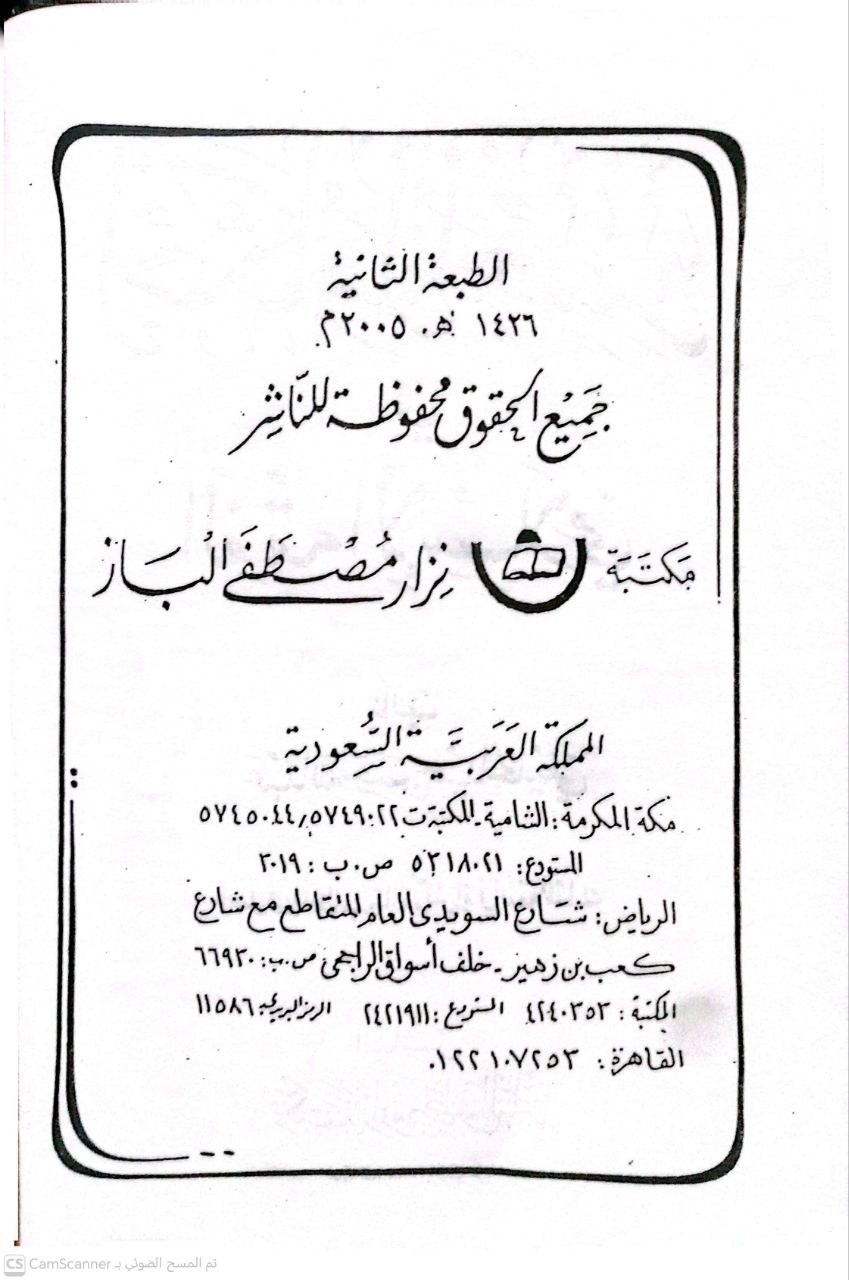 الطبعة الثانية
١٤٢٦ هـ . ٢٠٠٥م
جَمِيْع الحقوق محفوظة للنّاشِر
مَكتَبَة نِزار مُصْطَفَى البَاز
المملكة العَرَبيَّة السُّعودية
مكة المكرمة : الشامية - المكتبة ت ٥٧٤٩٠٢٢/٥٧٤٥٠٤٤
المستودع : ٥٣١٨٠٢١ ص . ب : ٢٠١٩
الرياض : شارع السويدى العام المتقاطع مع شارع
كعب بن زهير - خلف أسواق الراجحى ص . ب : ٦٦٩٣٠
المكتبة : ٤٢٤٠٣٥٣ المستودع : ٢٤٢١٩١١ الرمز البريدى ١١٥٨٦
القاهرة : ٠١٢٢١٠٧٢٥٣
CS CamScanner تم المسح الضوئي بـ